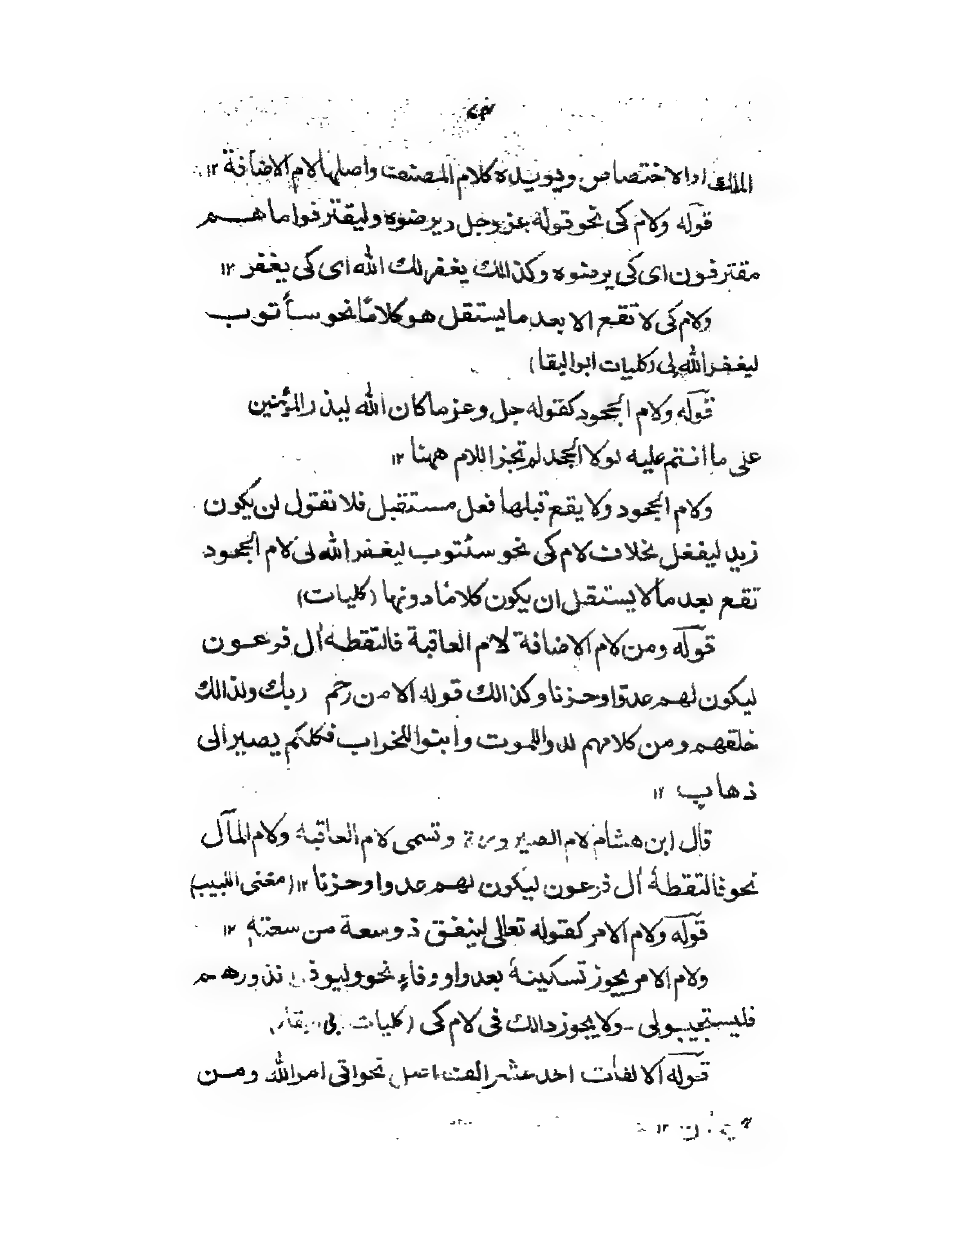 الملك اوالاختصاص ويويده كلام المصنف واصلها لام الاضافة ١٢
قوله ولام كى نحو قوله عز وجل وليرضوه وليقترفوا ما هم
مقترفون اى كى يرضوه وكذالك يغفر لك الله اى كى يغفر ١٢
ولام كى لا تقع الا بعد ما يستقل هو كلاما نحو سأ توب
ليغفر الله لى (كليات ابوالبقا)
قوله ولام الجحود كقوله جل وعز ما كان الله ليذر المؤمنين
على ما انتم عليه لولا الجحد لم تجز اللام ههنا ١٢
ولام الجحود ولا يقع قبلها فعل مستقبل فلا تقول لن يكون
زيد ليفعل بخلاف لام كى نحو سئتوب ليغفر الله لى لام الجحود
تقع بعد مالا يستقل ان يكون كلاما دونها (كليات)
قوله ومن لام الاضافة لام العاقبة فالتقطه أل فرعون
ليكون لهم عدوا وحزنا وكذالك قوله الا من رحم ربك ولذالك
خلقهم ومن كلامهم لدوا للموت وابنوا للخراب فكلكم يصير الى
ذهاب ١٢
قال ابن هشام لام الصيرورة وتسمى لام العاقبة ولام المآل
نحو فالتقطه أل فرعون ليكون لهم عدوا وحزنا ١٢ (مغنى اللبيب)
قوله ولام الامر كقوله تعالى لينفق ذوسعة من سعته ١٢
ولام الامر يجوز تسكينه بعد واو وفاء نحو وليوفوا نذورهم
فليستجيبولى - ولا يجوز ذالك فى لام كى (كليات ابى البقا)
قوله الالفات احد عشر الف اصل نحو اتى امر الله ومن